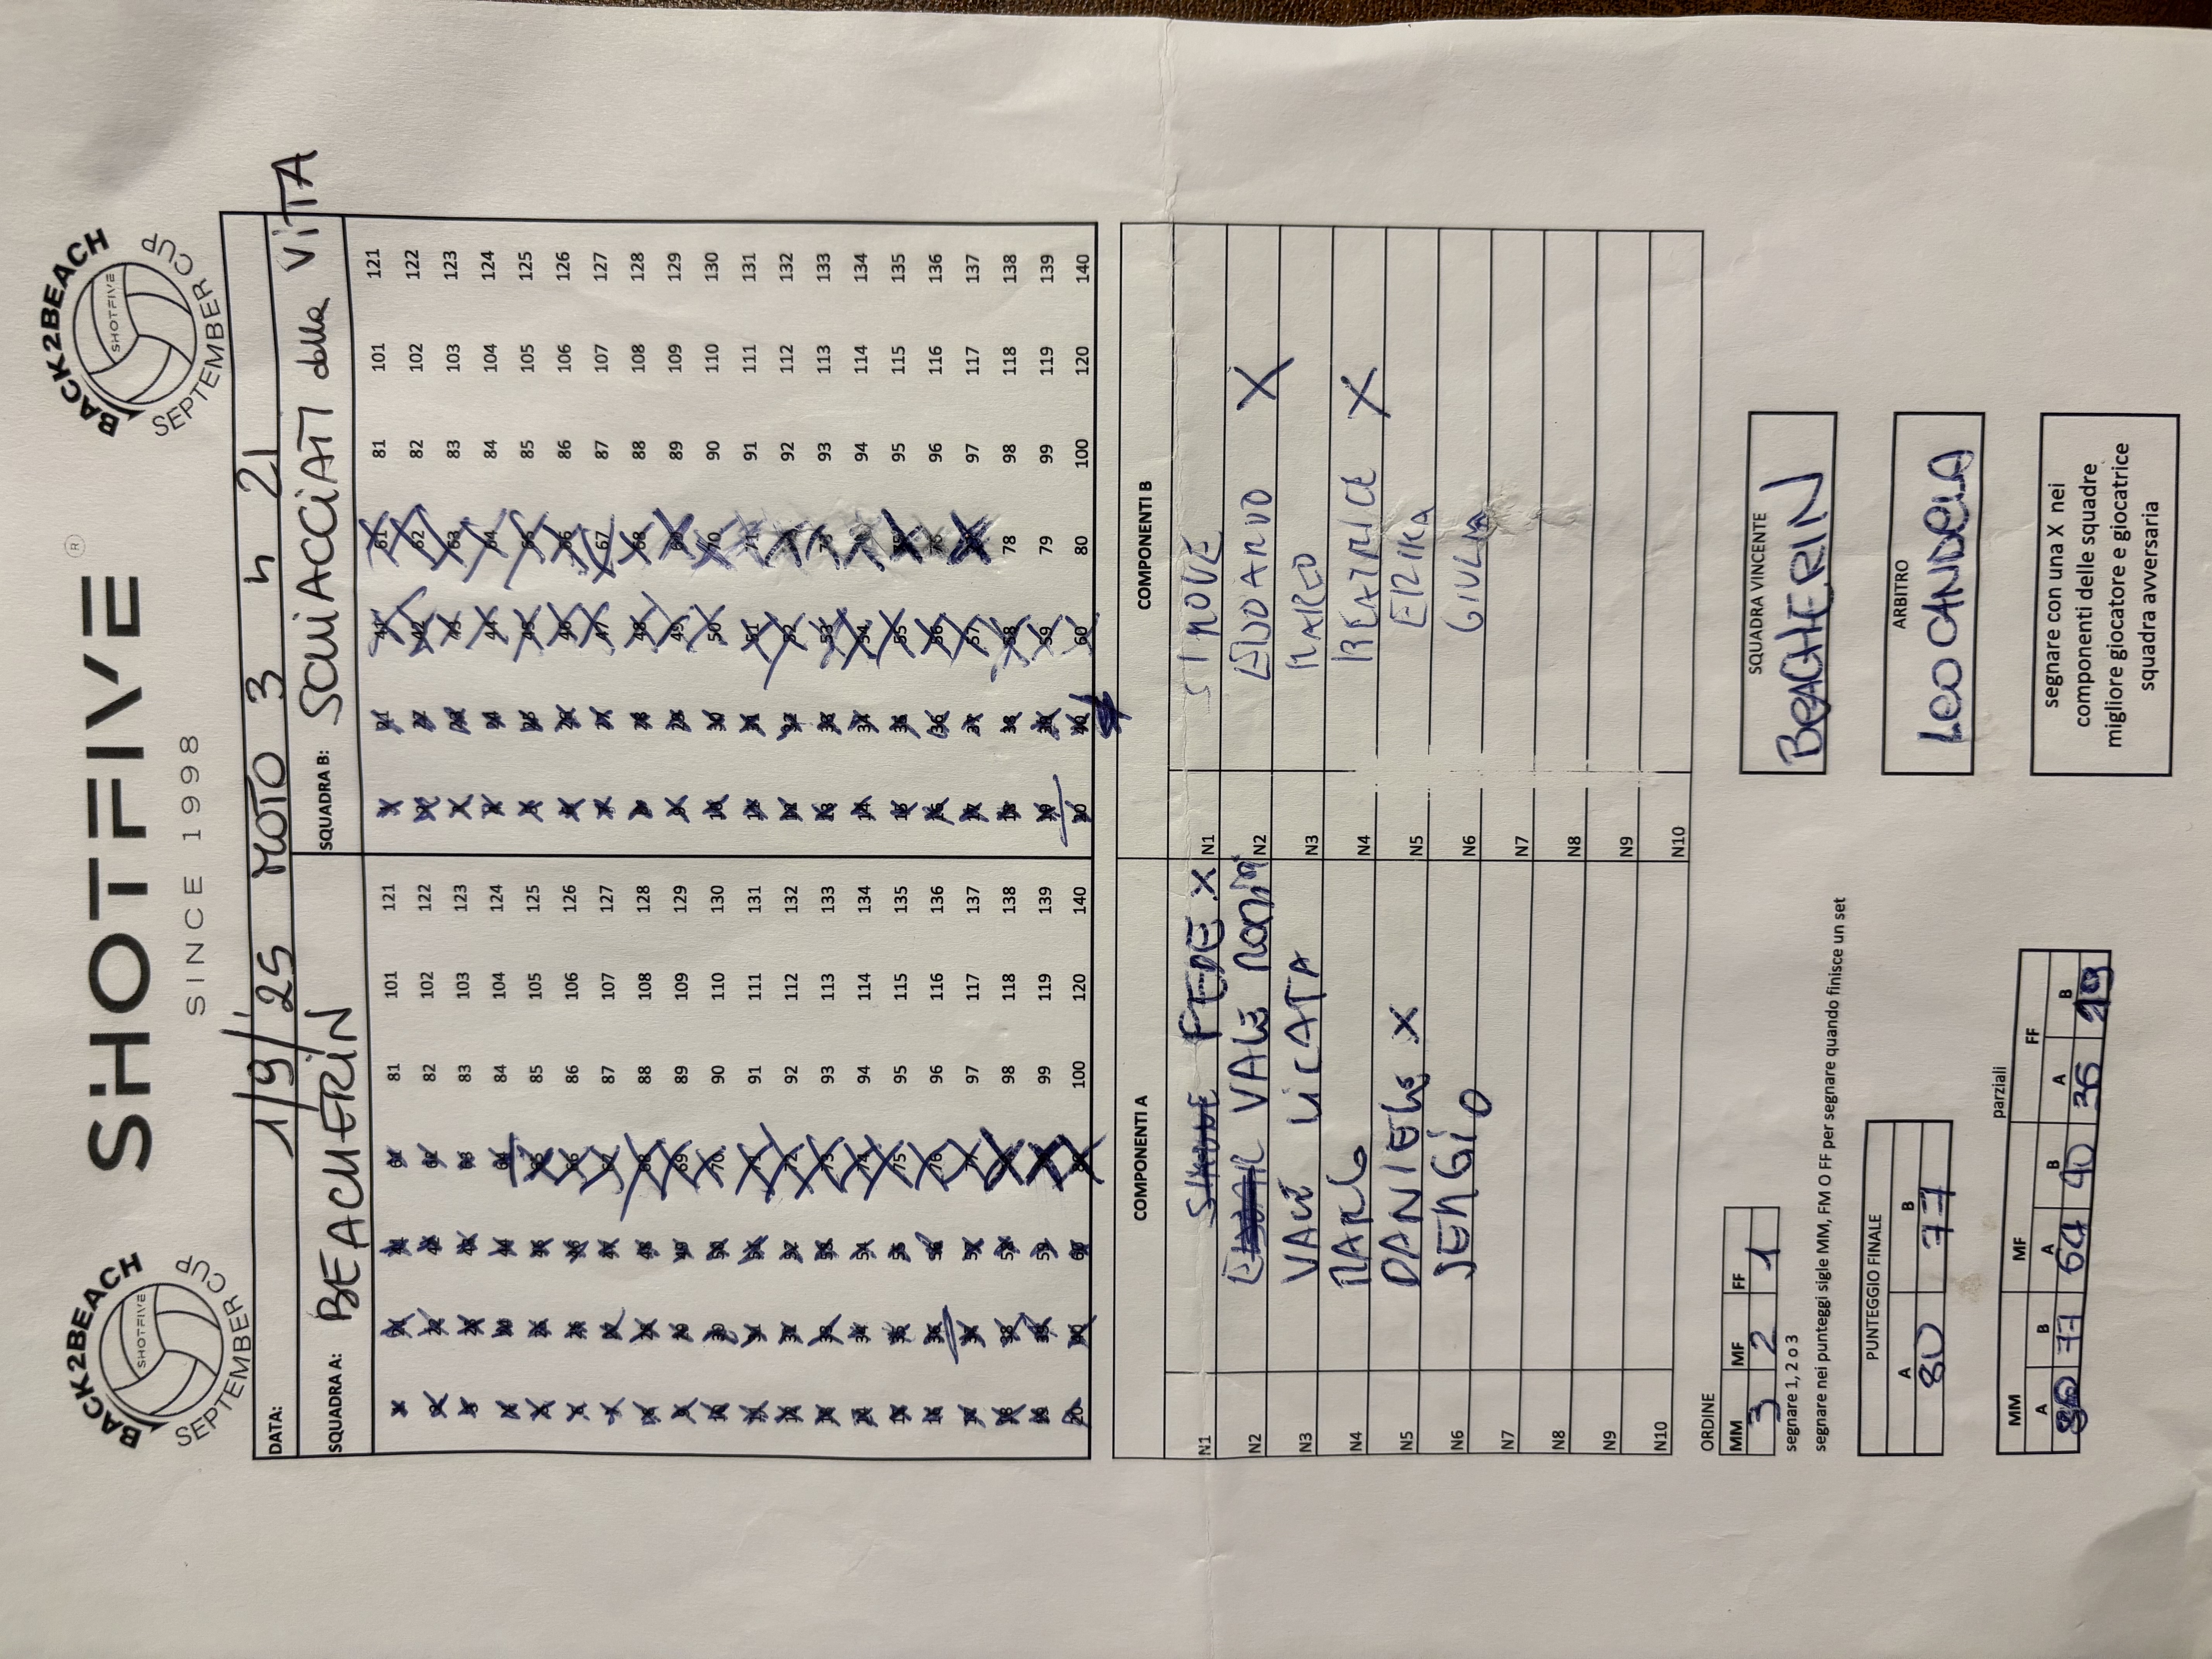 BACK2BEACH
SHOTFIVE
SEPTEMBER CUP
SHOTFIVE ®
SINCE 1998
BACK2BEACH
SHOTFIVE
SEPTEMBER CUP
DATA: 1/9/'25 MOTO 3 h 21
SQUADRA A: BEACHERIN
SQUADRA B: SCHIACCIATI della ViTTA
1 21 41 61 81 101 121 1 21 41 61 81 101 121
2 22 42 62 82 102 122 2 22 42 62 82 102 122
3 23 43 63 83 103 123 3 23 43 63 83 103 123
4 24 44 64 84 104 124 4 24 44 64 84 104 124
5 25 45 65 85 105 125 5 25 45 65 85 105 125
6 26 46 66 86 106 126 6 26 46 66 86 106 126
7 27 47 67 87 107 127 7 27 47 67 87 107 127
8 28 48 68 88 108 128 8 28 48 68 88 108 128
9 29 49 69 89 109 129 9 29 49 69 89 109 129
10 30 50 70 90 110 130 10 30 50 70 90 110 130
11 31 51 71 91 111 131 11 31 51 71 91 111 131
12 32 52 72 92 112 132 12 32 52 72 92 112 132
13 33 53 73 93 113 133 13 33 53 73 93 113 133
14 34 54 74 94 114 134 14 34 54 74 94 114 134
15 35 55 75 95 115 135 15 35 55 75 95 115 135
16 36 56 76 96 116 136 16 36 56 76 96 116 136
17 37 57 77 97 117 137 17 37 57 77 97 117 137
18 38 58 78 98 118 138 18 38 58 78 98 118 138
19 39 59 79 99 119 139 19 39 59 79 99 119 139
20 40 60 80 100 120 140 20 40 60 80 100 120 140
COMPONENTI A COMPONENTI B
N1 FEDE X N1 SIMONE
N2 VALE N2 EDOARDO X
N3 VALE LiCATA N3 MARCO
N4 MARCO N4 BEATRICE X
N5 DANIELE X N5 ERIKA
N6 SERGIO N6 GIULIA
N7 N7
N8 N8
N9 N9
N10 N10
ORDINE
MM MF FF
3 2 1
segnare 1, 2 o 3
segnare nei punteggi sigle MM, FM O FF per segnare quando finisce un set
PUNTEGGIO FINALE
A B
80 77
parziali
MM MF FF
A B A B A B
80 77 64 40 36 19
SQUADRA VINCENTE
BEACHERIN
ARBITRO
LEO CANDELA
segnare con una X nei
componenti delle squadre
migliore giocatore e giocatrice
squadra avversaria